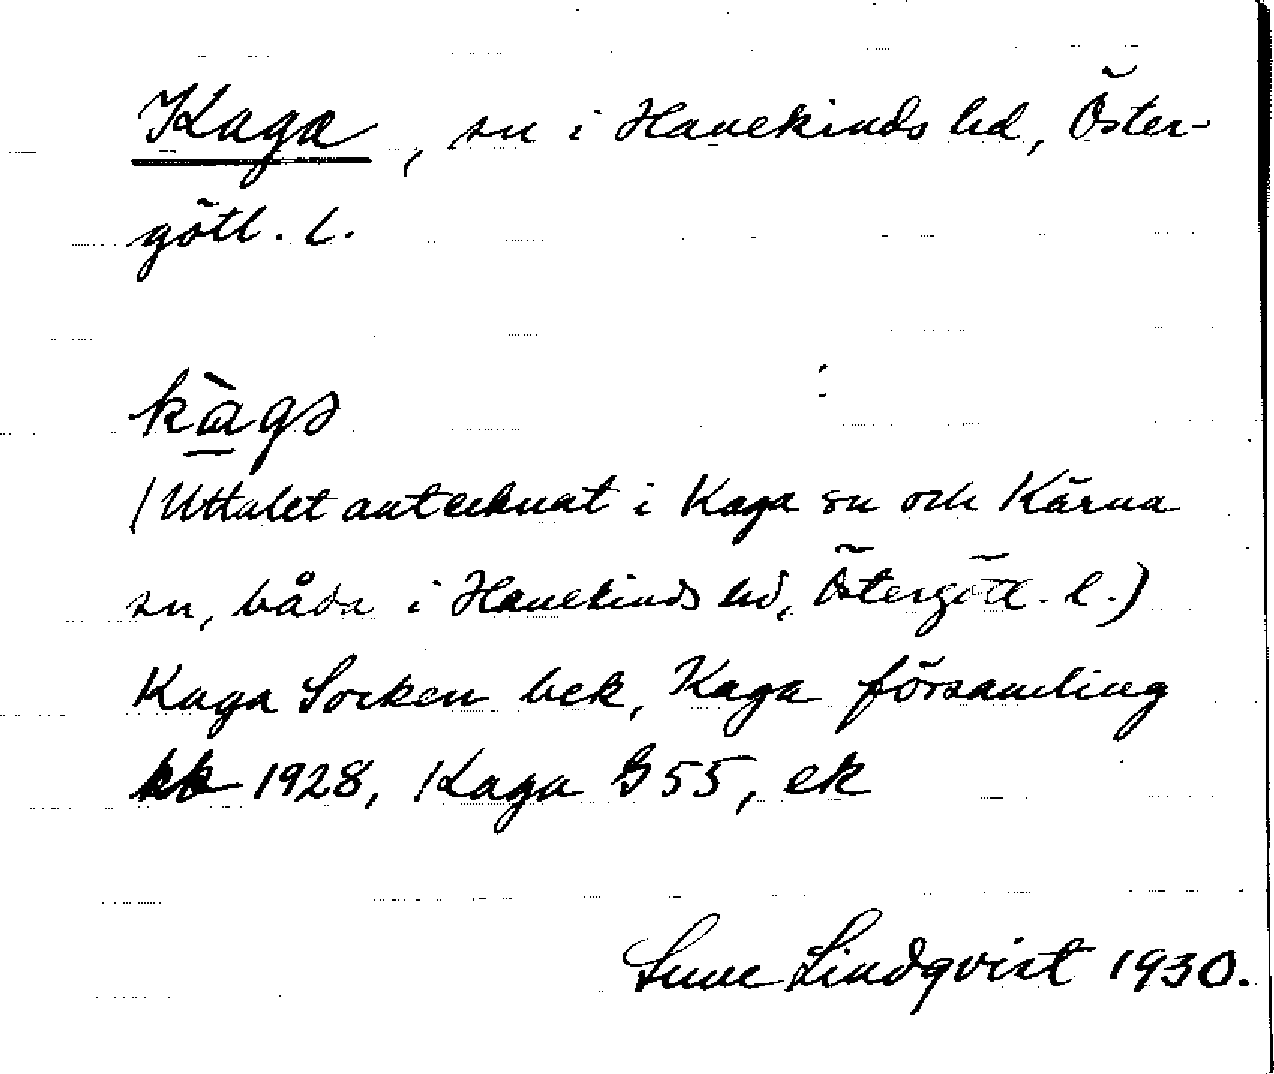 Kaga, sn i Hanekinds hd, Öster-
götl. l.
kàgə
(Uttalet antecknat i Kaga sn och Kärna
sn, båda i Hanekinds hd, Östergötl. l.)
Kaga Socken bek, Kaga församling
kk 1928, Kaga G 55, ek
Sune Lindqvist 1930.